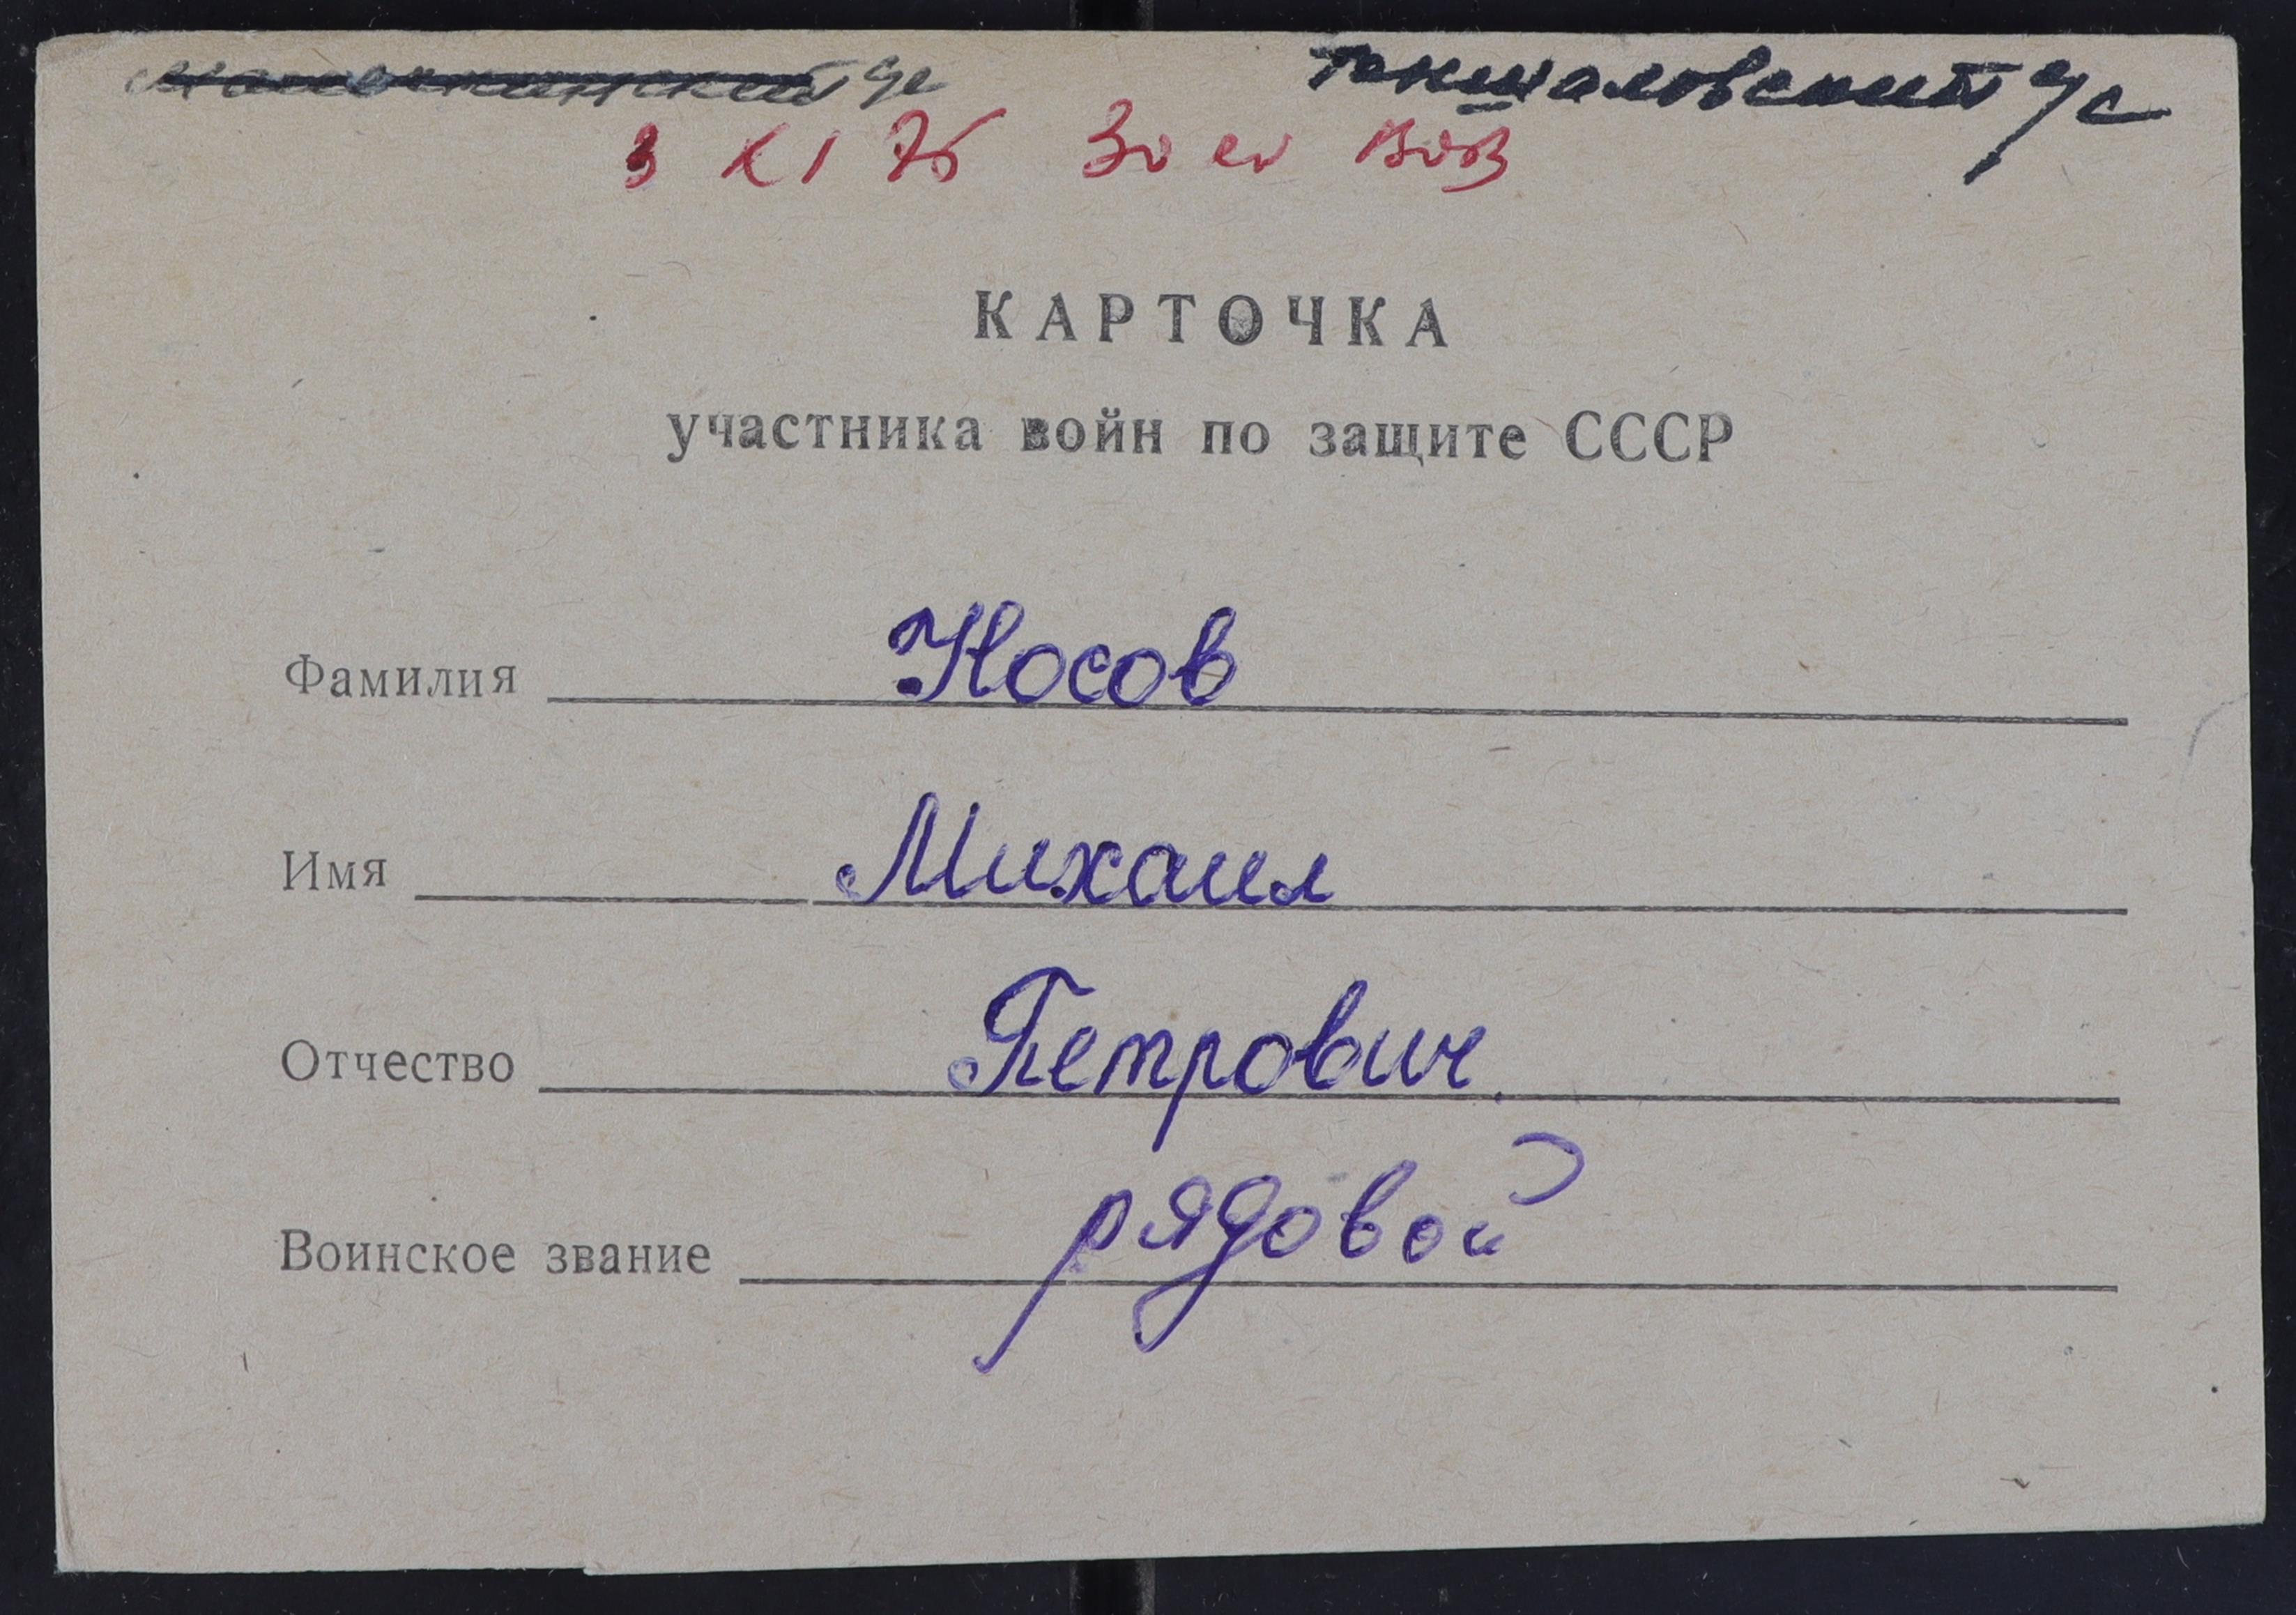 с/с Токшаловский с/с
3 XI 75 30 ев ВОВ
КАРТОЧКА
участника войн по защите СССР
Фамилия Носов
Имя Михаил
Отчество Петрович
Воинское звание рядовой